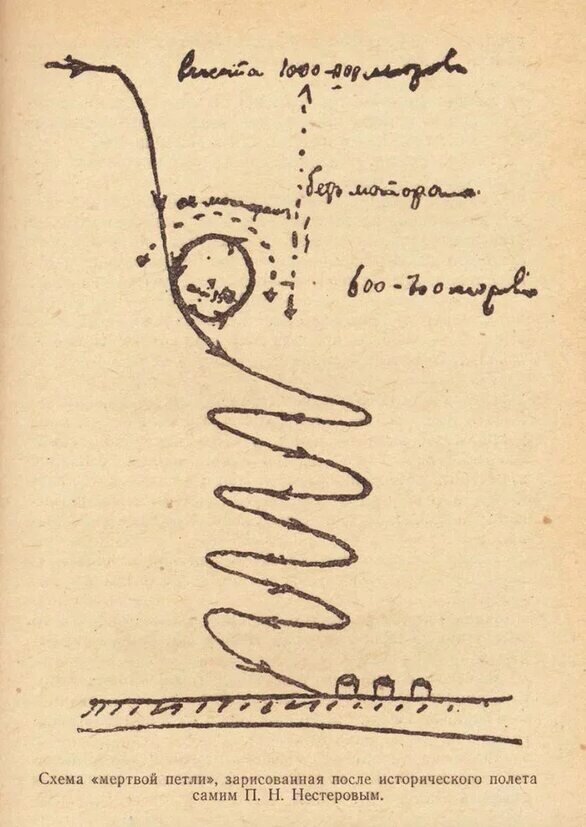 высота 1000
съ мотором
безъ мотора
600-700 метровъ
Схема «мертвой петли», зарисованная после исторического полета
самим П. Н. Нестеровым.